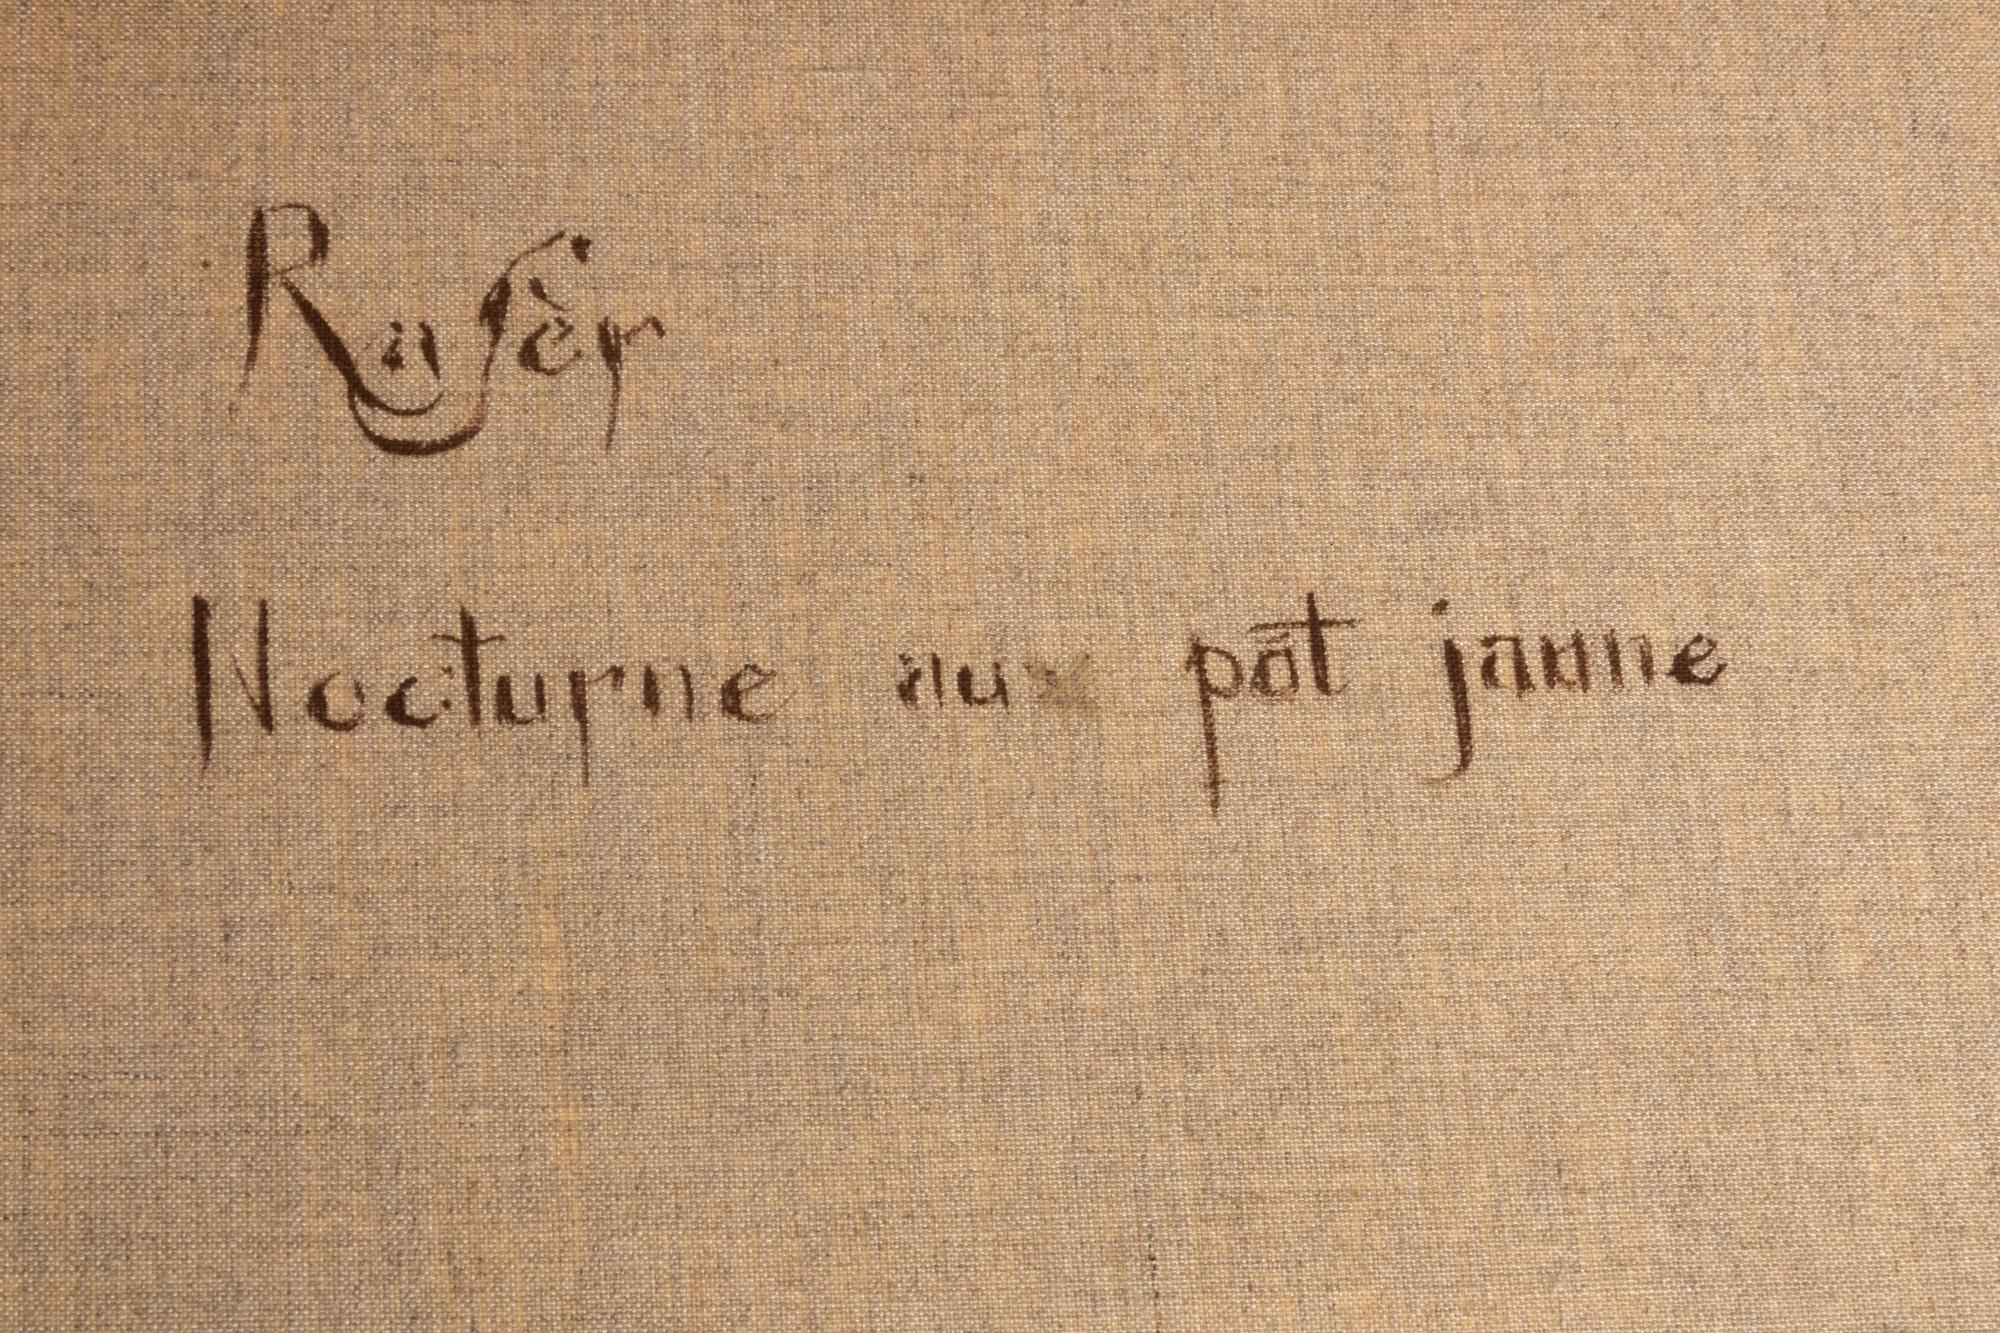 Rafèr
Nocturne au pot jaune